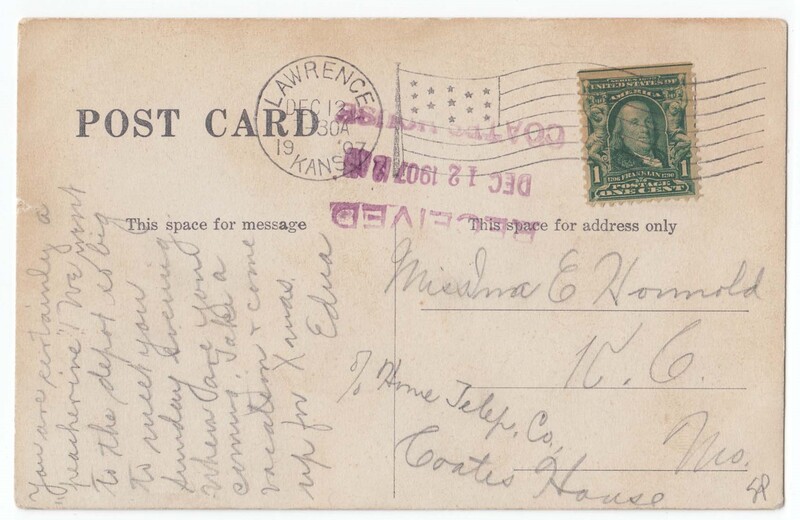 POST CARD
LAWRENCE
DEC 12
30A
19 '07
KANS
SERIES 1902
UNITED STATES OF
AMERICA
1 1
1706 FRANKLIN 1790
POSTAGE
ONE CENT
RECEIVED
DEC 12 1907
COATES HOUSE
This space for message
This space for address only
You are certainly a
"peacherine"! We went
to the depot
to meet you
Sunday evening
When are you
coming. Take a
vacation & come
up for Xmas.
Edna
Miss Ina E Honnold
K. C.
Mo.
c/o Home Telep. Co,
Coates House